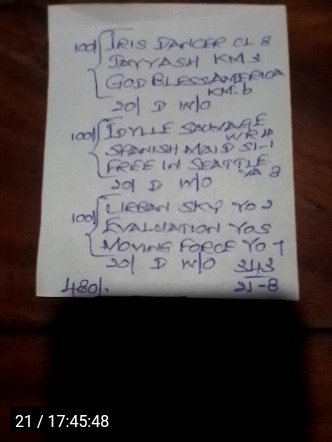 100/ IRIS DANCER CL 8
JAYYASH KM 3
GOD BLESS AMERICA
KM-6
20/ D W/O
100/ IDYLLE SAUVAGE
WR 10
SPANISH MAID SI-1
FREE IN SEATTLE
YA 8
20/ D W/O
100/ URBAN SKY YO 2
EVALUATION YO 5
MOVING FORCE YO 7
20/ D W/O 343
480/. 21-8
21 / 17:45:48